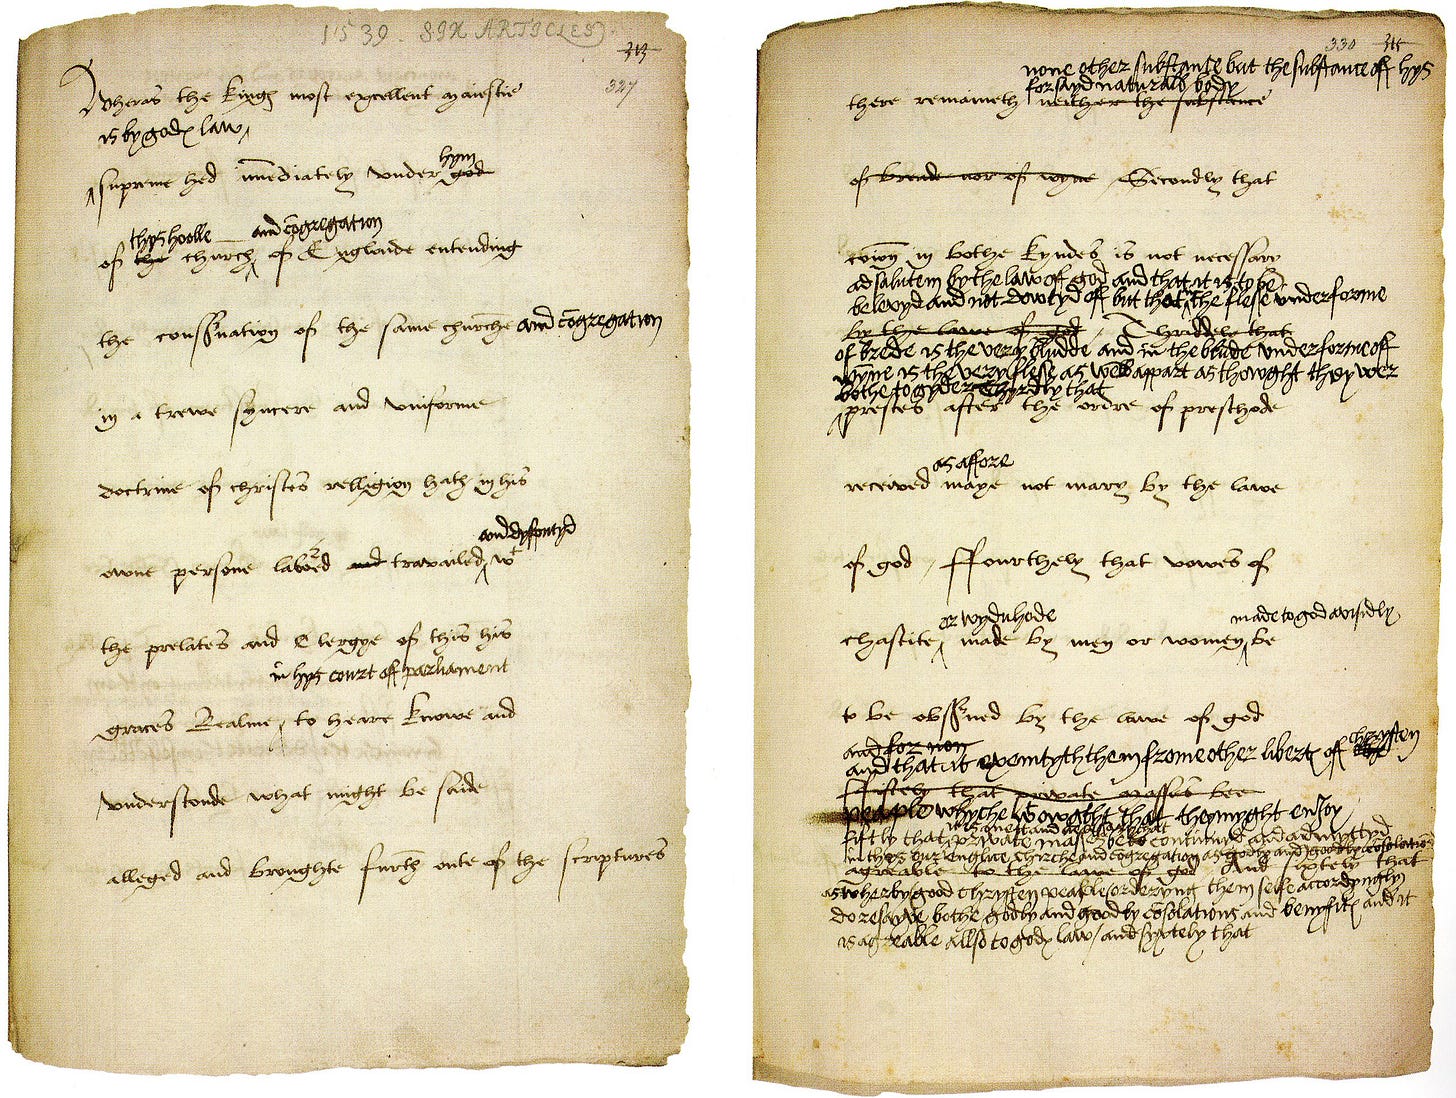 1539. SIX ARTICLES
313
327
Wheras the kinges most excellent maiestie
is by godes law
supreme hed imediately under god
hym
thys hoolle and cōgregation
of the church of Englonde entending
the conservation of the same churche and cōgregation
in a trewe syncere and uniforme
doctrine of christes relligion hath in his
and dysputyd
owne persone labored and travailed wt
the prelates and Clergye of this his
in hys court off parliament
graces Realme, to heare knowe and
understonde what might be saide
alleged and broughte furth oute of the scriptures
330 315
none other substance but the substance off hys
forsayd naturall body
there remaineth neither the substance
of breade nor of wyne, Secondly that
coīon in bothe kyndes is not necessary
ad salutem by the law off god and that it is to be
belevyd and not dowtyd off but that the flese under forme
by the lawe of god, Thriddely that
of brede is the very bludde and in the blude under forme off
wyne is the very flese as well appart as thowght they wer
bothe to gyder Thyrdly that
prestes after the ordre of presthode
as affore
received maye not mary by the lawe
of god, Ffourthely that vowes of
or wyduhode made to god avisidly
chastite, made by men or women be
to be observed by the lawe of god
and for non
and that it exemtyth them frome other libertes of chrysten
Fiftely that private masses bee
peaple whyche wowght that they myght enjoy
fiftly that private masses be contynuyd and admyttyd
in thys our englice chirche and cōgregation as godly and goodly cōsolation
agreable to the lawe of god And sixtely that
as wher by good chrysten peaple orderyng them selfe accordyngly
do resayve bothe godly and goodly cōsolations and benyfites and it
is agreable allso to godes law/ and syxtely that